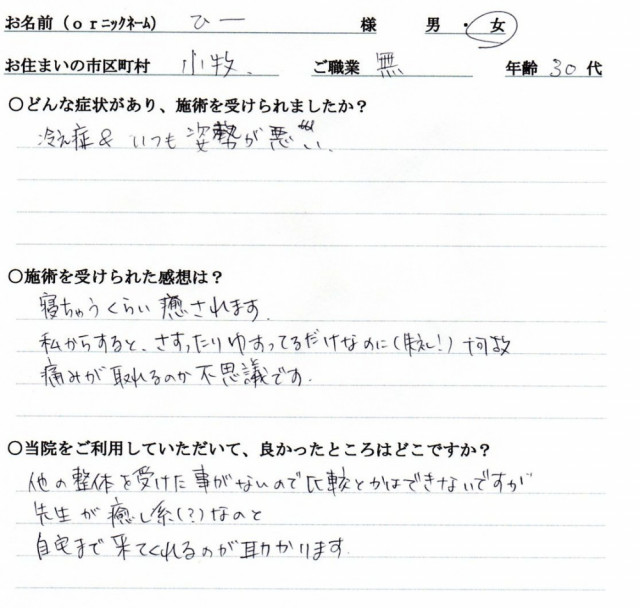 お名前（ｏｒニックネーム） ひー 様 男 ・ 女
お住まいの市区町村 小牧、 ご職業 無 年齢 30 代
○どんな症状があり、施術を受けられましたか？
冷え症＆いつも姿勢が悪い、
○施術を受けられた感想は？
寝ちゃうくらい癒されます。
私からすると、さすったりゆすってるだけなのに(失礼!)何故
痛みが取れるのか不思議です。
○当院をご利用していただいて、良かったところはどこですか？
他の整体を受けた事がないので比較とかはできないですが
先生が癒し系(?)なのと
自宅まで来てくれるのが助かります。